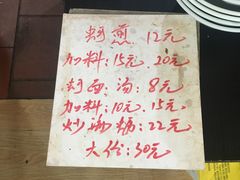 蚵煎 12元
加料:15元.20元
蚵面.汤:8元
加料:10元.15元
炒海蛎:22元
大份:30元